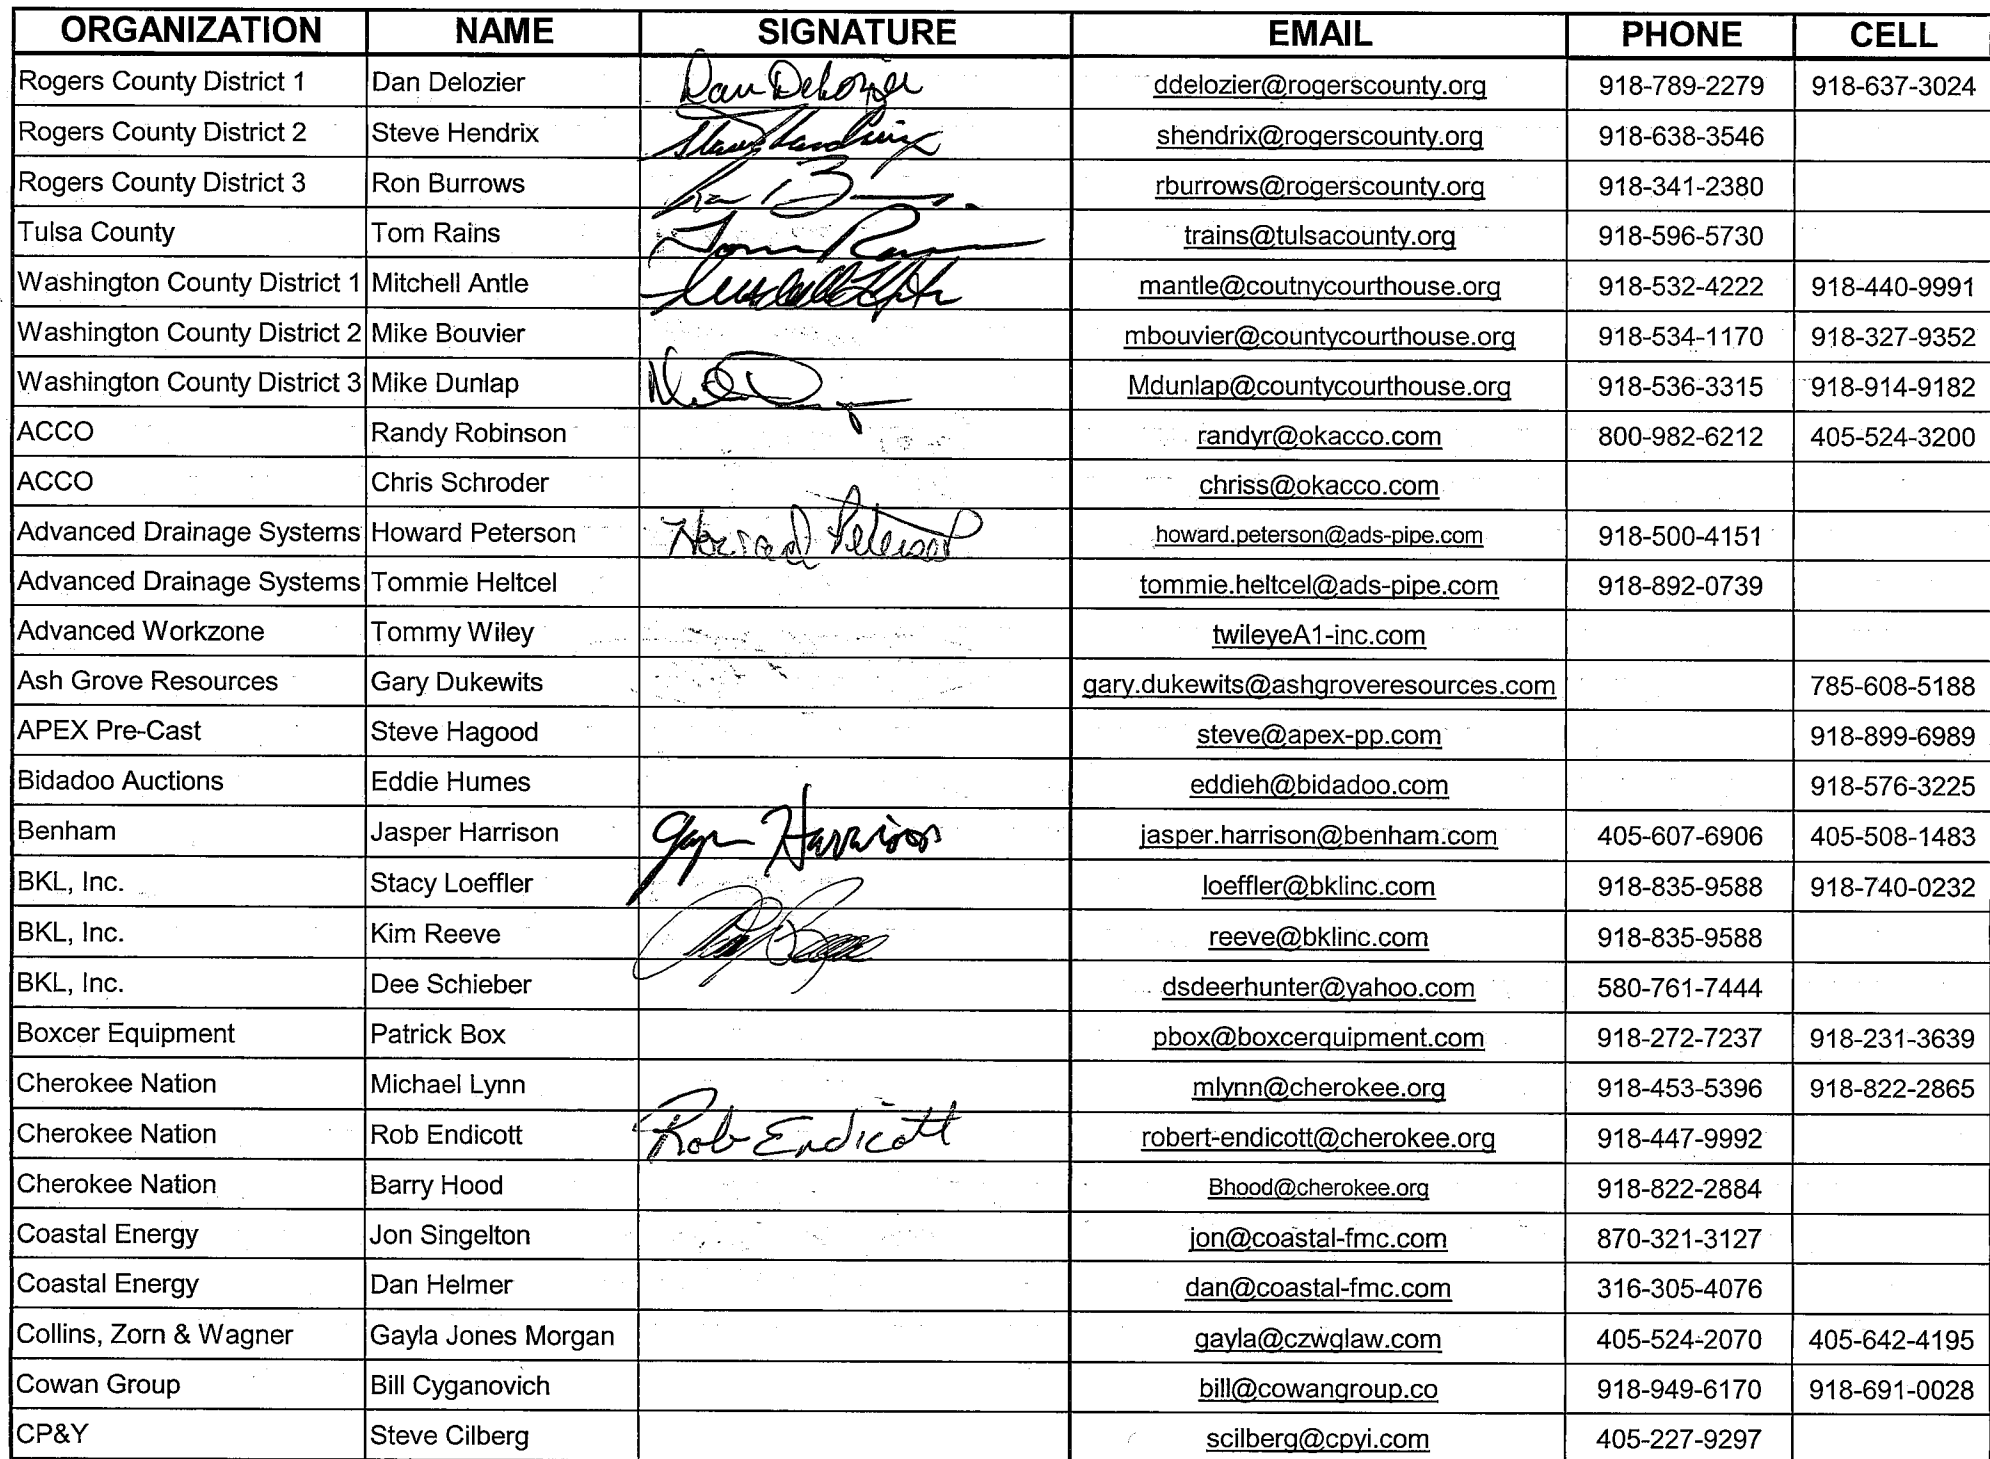 ORGANIZATION NAME SIGNATURE EMAIL PHONE CELL
Rogers County District 1 Dan Delozier Dan Delozier ddelozier@rogerscounty.org 918-789-2279 918-637-3024
Rogers County District 2 Steve Hendrix shendrix@rogerscounty.org 918-638-3546
Rogers County District 3 Ron Burrows rburrows@rogerscounty.org 918-341-2380
Tulsa County Tom Rains Tom trains@tulsacounty.org 918-596-5730
Washington County District 1 Mitchell Antle mantle@coutnycourthouse.org 918-532-4222 918-440-9991
Washington County District 2 Mike Bouvier mbouvier@countycourthouse.org 918-534-1170 918-327-9352
Washington County District 3 Mike Dunlap Mdunlap@countycourthouse.org 918-536-3315 918-914-9182
ACCO Randy Robinson randyr@okacco.com 800-982-6212 405-524-3200
ACCO Chris Schroder chriss@okacco.com
Advanced Drainage Systems Howard Peterson Howard Peterson howard.peterson@ads-pipe.com 918-500-4151
Advanced Drainage Systems Tommie Heltcel tommie.heltcel@ads-pipe.com 918-892-0739
Advanced Workzone Tommy Wiley twileyeA1-inc.com
Ash Grove Resources Gary Dukewits gary.dukewits@ashgroveresources.com 785-608-5188
APEX Pre-Cast Steve Hagood steve@apex-pp.com 918-899-6989
Bidadoo Auctions Eddie Humes eddieh@bidadoo.com 918-576-3225
Benham Jasper Harrison Harrison jasper.harrison@benham.com 405-607-6906 405-508-1483
BKL, Inc. Stacy Loeffler loeffler@bklinc.com 918-835-9588 918-740-0232
BKL, Inc. Kim Reeve reeve@bklinc.com 918-835-9588
BKL, Inc. Dee Schieber dsdeerhunter@yahoo.com 580-761-7444
Boxcer Equipment Patrick Box pbox@boxcerquipment.com 918-272-7237 918-231-3639
Cherokee Nation Michael Lynn mlynn@cherokee.org 918-453-5396 918-822-2865
Cherokee Nation Rob Endicott Rob Endicott robert-endicott@cherokee.org 918-447-9992
Cherokee Nation Barry Hood Bhood@cherokee.org 918-822-2884
Coastal Energy Jon Singelton jon@coastal-fmc.com 870-321-3127
Coastal Energy Dan Helmer dan@coastal-fmc.com 316-305-4076
Collins, Zorn & Wagner Gayla Jones Morgan gayla@czwglaw.com 405-524-2070 405-642-4195
Cowan Group Bill Cyganovich bill@cowangroup.co 918-949-6170 918-691-0028
CP&Y Steve Cilberg scilberg@cpyi.com 405-227-9297